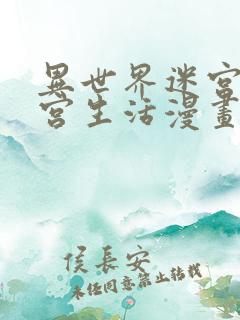 異世界迷宮
宮生活漫畫
侯長安
未經同意禁止轉載